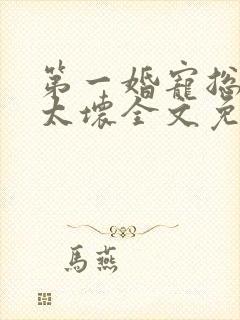 第一婚寵總
太壞全文免
馬燕